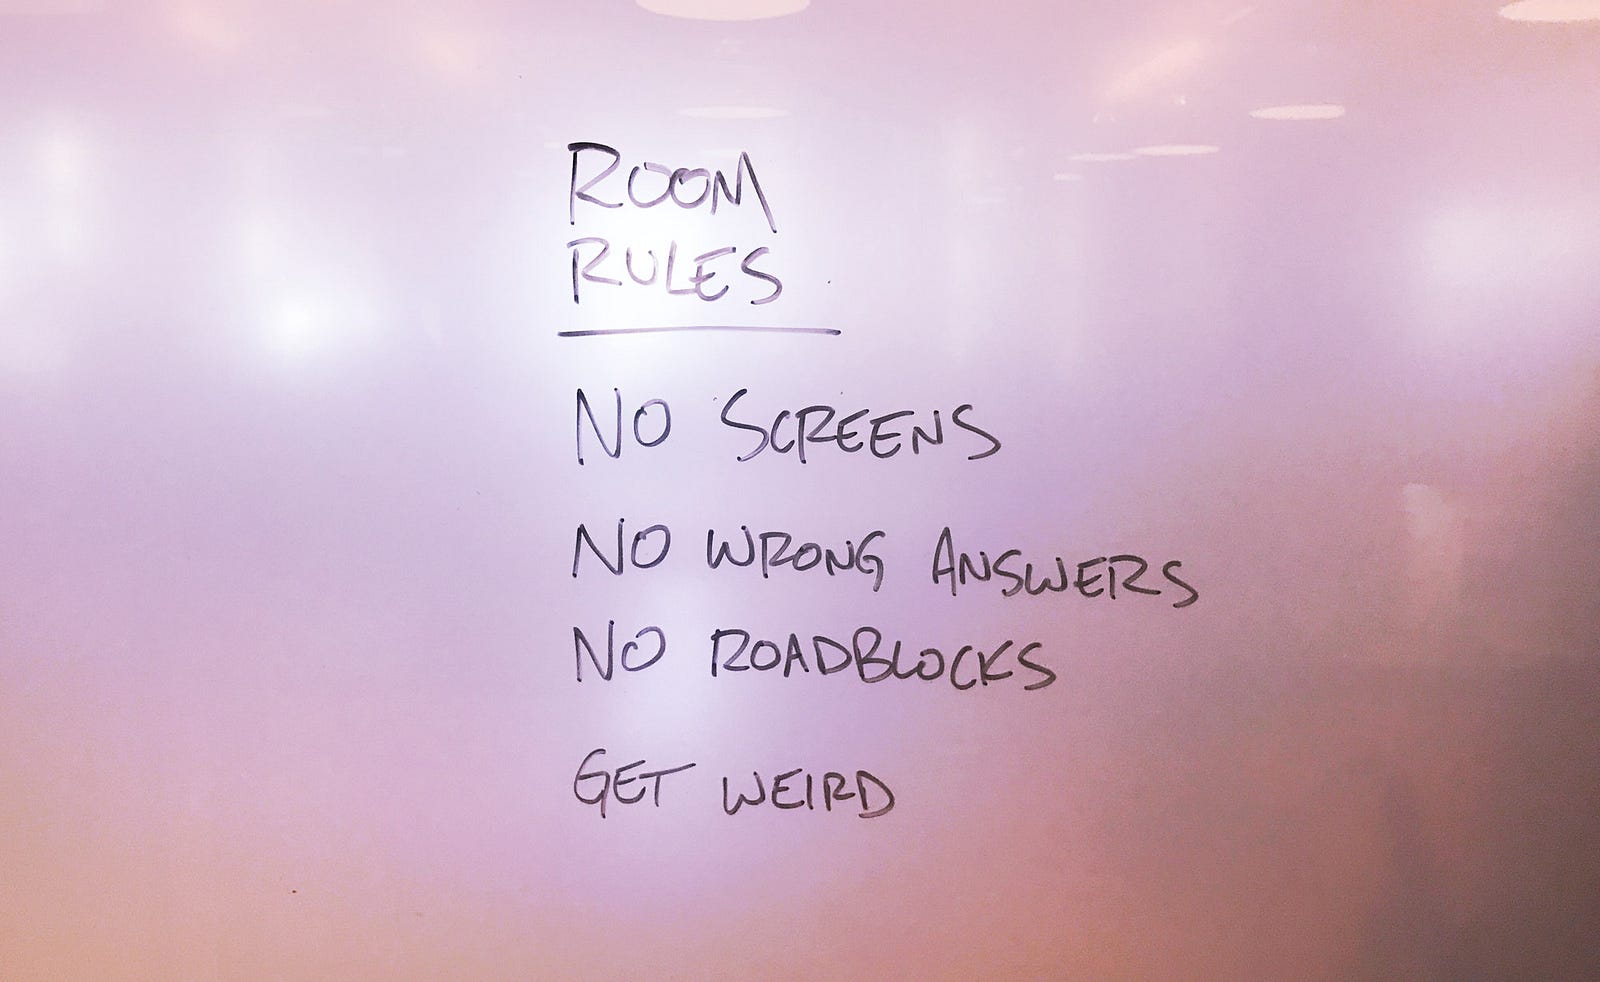 ROOM
RULES
NO SCREENS
NO WRONG ANSWERS
NO ROADBLOCKS
GET WEIRD